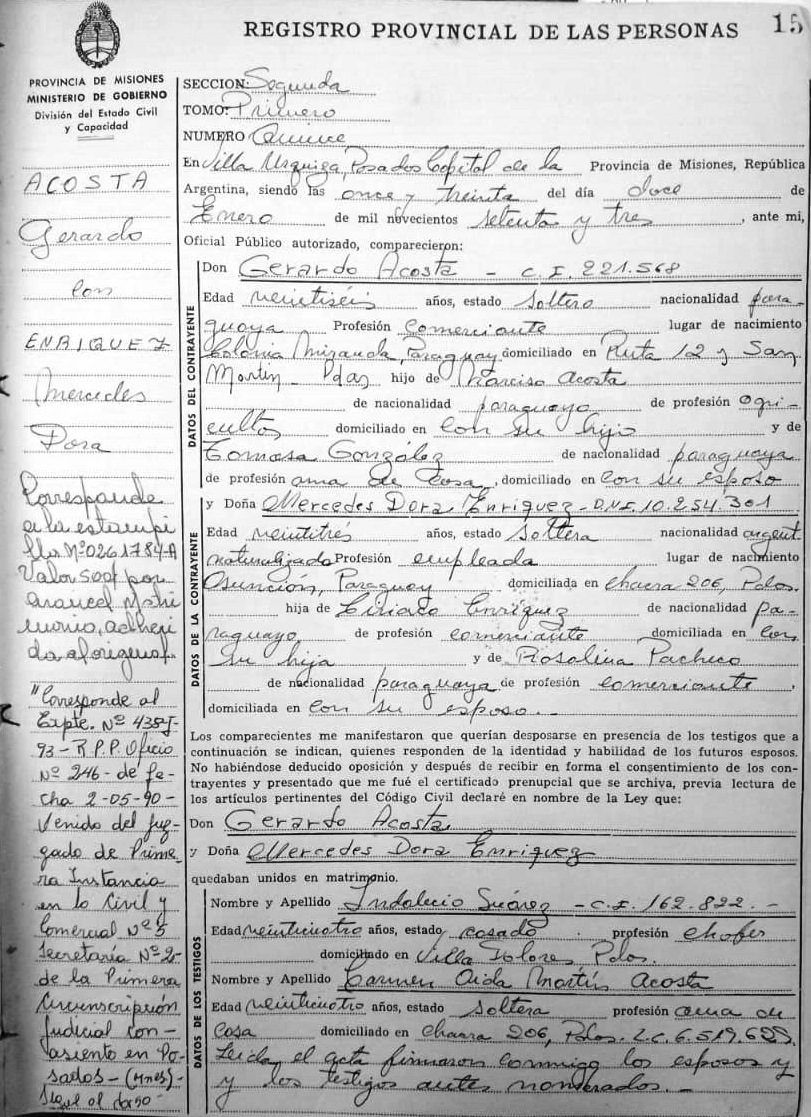 REGISTRO PROVINCIAL DE LAS PERSONAS
15
PROVINCIA DE MISIONES
MINISTERIO DE GOBIERNO
División del Estado Civil
y Capacidad
ACOSTA
Gerardo
con
ENRIQUEZ
Mercedes
Dora
Corresponde
a la estampi
lla Nº0261784-A
Valor 500$ por
arancel Matri
monio, adheri
da al original.
"Corresponde al
Expte. Nº
93-R.P.P. Oficio
Nº 246- de fe-
cha 2-05-90-
Venido del juz-
gado de Prime
ra Instancia
en lo Civil y
Comercial Nº5
Secretaría Nº2-
de la Primera
Circunscripción
Judicial con-
asiento en Po-
sadas-(Mnes)-
Sigue al dorso-
SECCION: Segunda
TOMO: Primero
NUMERO Quince
En Villa Urquiza, Posadas Capital de la Provincia de Misiones, República
Argentina, siendo las once y treinta del día doce de
Enero de mil novecientos setenta y tres, ante mi,
Oficial Público autorizado, comparecieron:
DATOS DEL CONTRAYENTE
Don Gerardo Acosta - C.I. 221.568
Edad veintiséis años, estado soltero nacionalidad para-
guaya Profesión comerciante lugar de nacimiento
Colonia Miranda, Paraguay domiciliado en Ruta 12 y San
Martín - Pdas hijo de Narciso Acosta
de nacionalidad paraguayo de profesión agri-
cultor domiciliado en con su hijo y de
Tomasa González de nacionalidad paraguaya
de profesión ama de casa, domiciliado en con su esposo
DATOS DE LA CONTRAYENTE
y Doña Mercedes Dora Enriquez - D.N.I. 10.254.301
Edad veintitrés años, estado soltera nacionalidad argent
naturalizada Profesión empleada lugar de nacimiento
Asunción, Paraguay domiciliada en chacra 206, Pdas.
hija de Ciriaco Enríquez de nacionalidad pa-
raguayo, de profesión comerciante domiciliada en con
su hija y de Rosalina Pacheco
de nacionalidad paraguaya de profesión comerciante
domiciliada en con su esposo.-
Los comparecientes me manifestaron que querían desposarse en presencia de los testigos que a
continuación se indican, quienes responden de la identidad y habilidad de los futuros esposos.
No habiéndose deducido oposición y después de recibir en forma el consentimiento de los con-
trayentes y presentado que me fué el certificado prenupcial que se archiva, previa lectura de
los artículos pertinentes del Código Civil declaré en nombre de la Ley que:
Don Gerardo Acosta
y Doña Mercedes Dora Enriquez
quedaban unidos en matrimonio.
DATOS DE LOS TESTIGOS
Nombre y Apellido Indalecio Suárez - C.I. 162.822.-
Edad veinticuatro años, estado casado profesión chofer
domiciliado en Villa Dolores Pdas.
Nombre y Apellido Carmen Aida Martins Acosta
Edad veinticuatro años, estado soltera profesión ama de
casa domiciliado en chacra 206, Pdas. L.C.
Leída el acta firmaron conmigo los esposos y
y los testigos antes nombrados.-